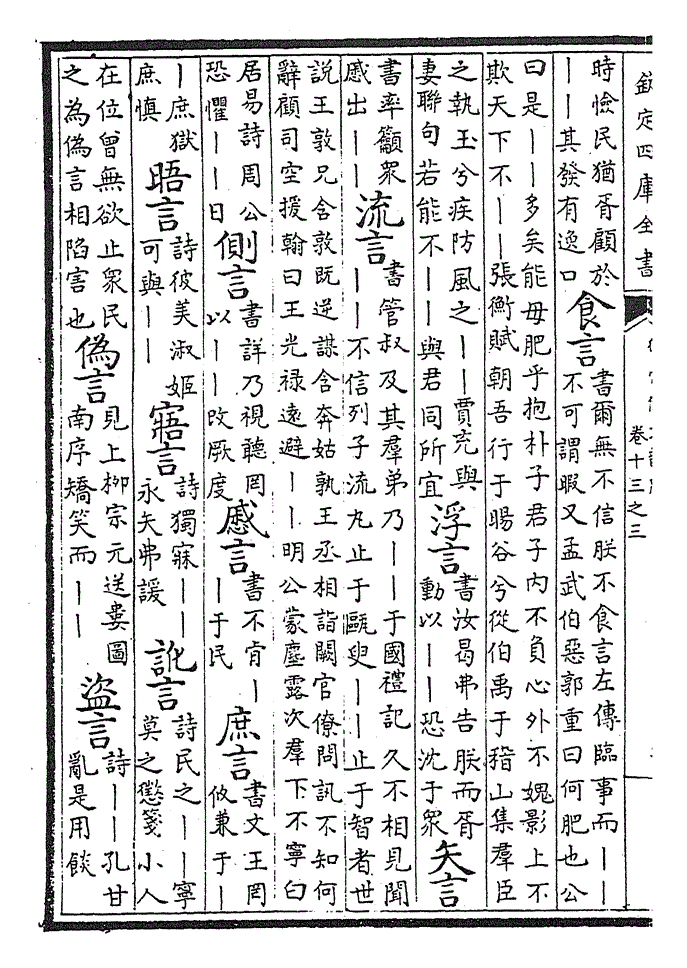 欽定四庫全書
卷十三之三
時憸民猶胥顧於
——其發有逸口
食言
書爾無不信朕不食言左傳臨事而——
不可謂暇又孟武伯惡郭重曰何肥也公
曰是——多矣能毋肥乎抱朴子君子内不負心外不媿影上不
欺天下不——張衡賦朝吾行于暘谷兮從伯禹于稽山集羣臣
之執玉兮疾防風之——賈充與
妻聯句若能不——與君同所宜
浮言
書汝曷弗告朕而胥
動以——恐沈于衆
矢言
書率籲衆
慼出——
流言
書管叔及其羣弟乃——于國禮記久不相見聞
——不信列子流丸止于甌臾——止于智者世
說王敦兄含敦既逆謀含奔姑孰王丞相詣闕官僚問訊不知何
辭顧司空援翰曰王光禄遠避——明公蒙塵露次羣下不寧白
居易詩周公
恐懼——日
側言
書詳乃視聽罔
以——改厥度
慼言
書不肯—
—于民
庶言
書文王罔
攸兼于—
—庶獄
庶慎
晤言
詩彼美淑姬
可與——
寤言
詩獨寐——
永矢弗諼
訛言
詩民之——寧
莫之懲箋小人
在位曾無欲止衆民
之為偽言相陷害也
偽言
見上柳宗元送婁圖
南序矯笑而——
盜言
詩——孔甘
亂是用餤